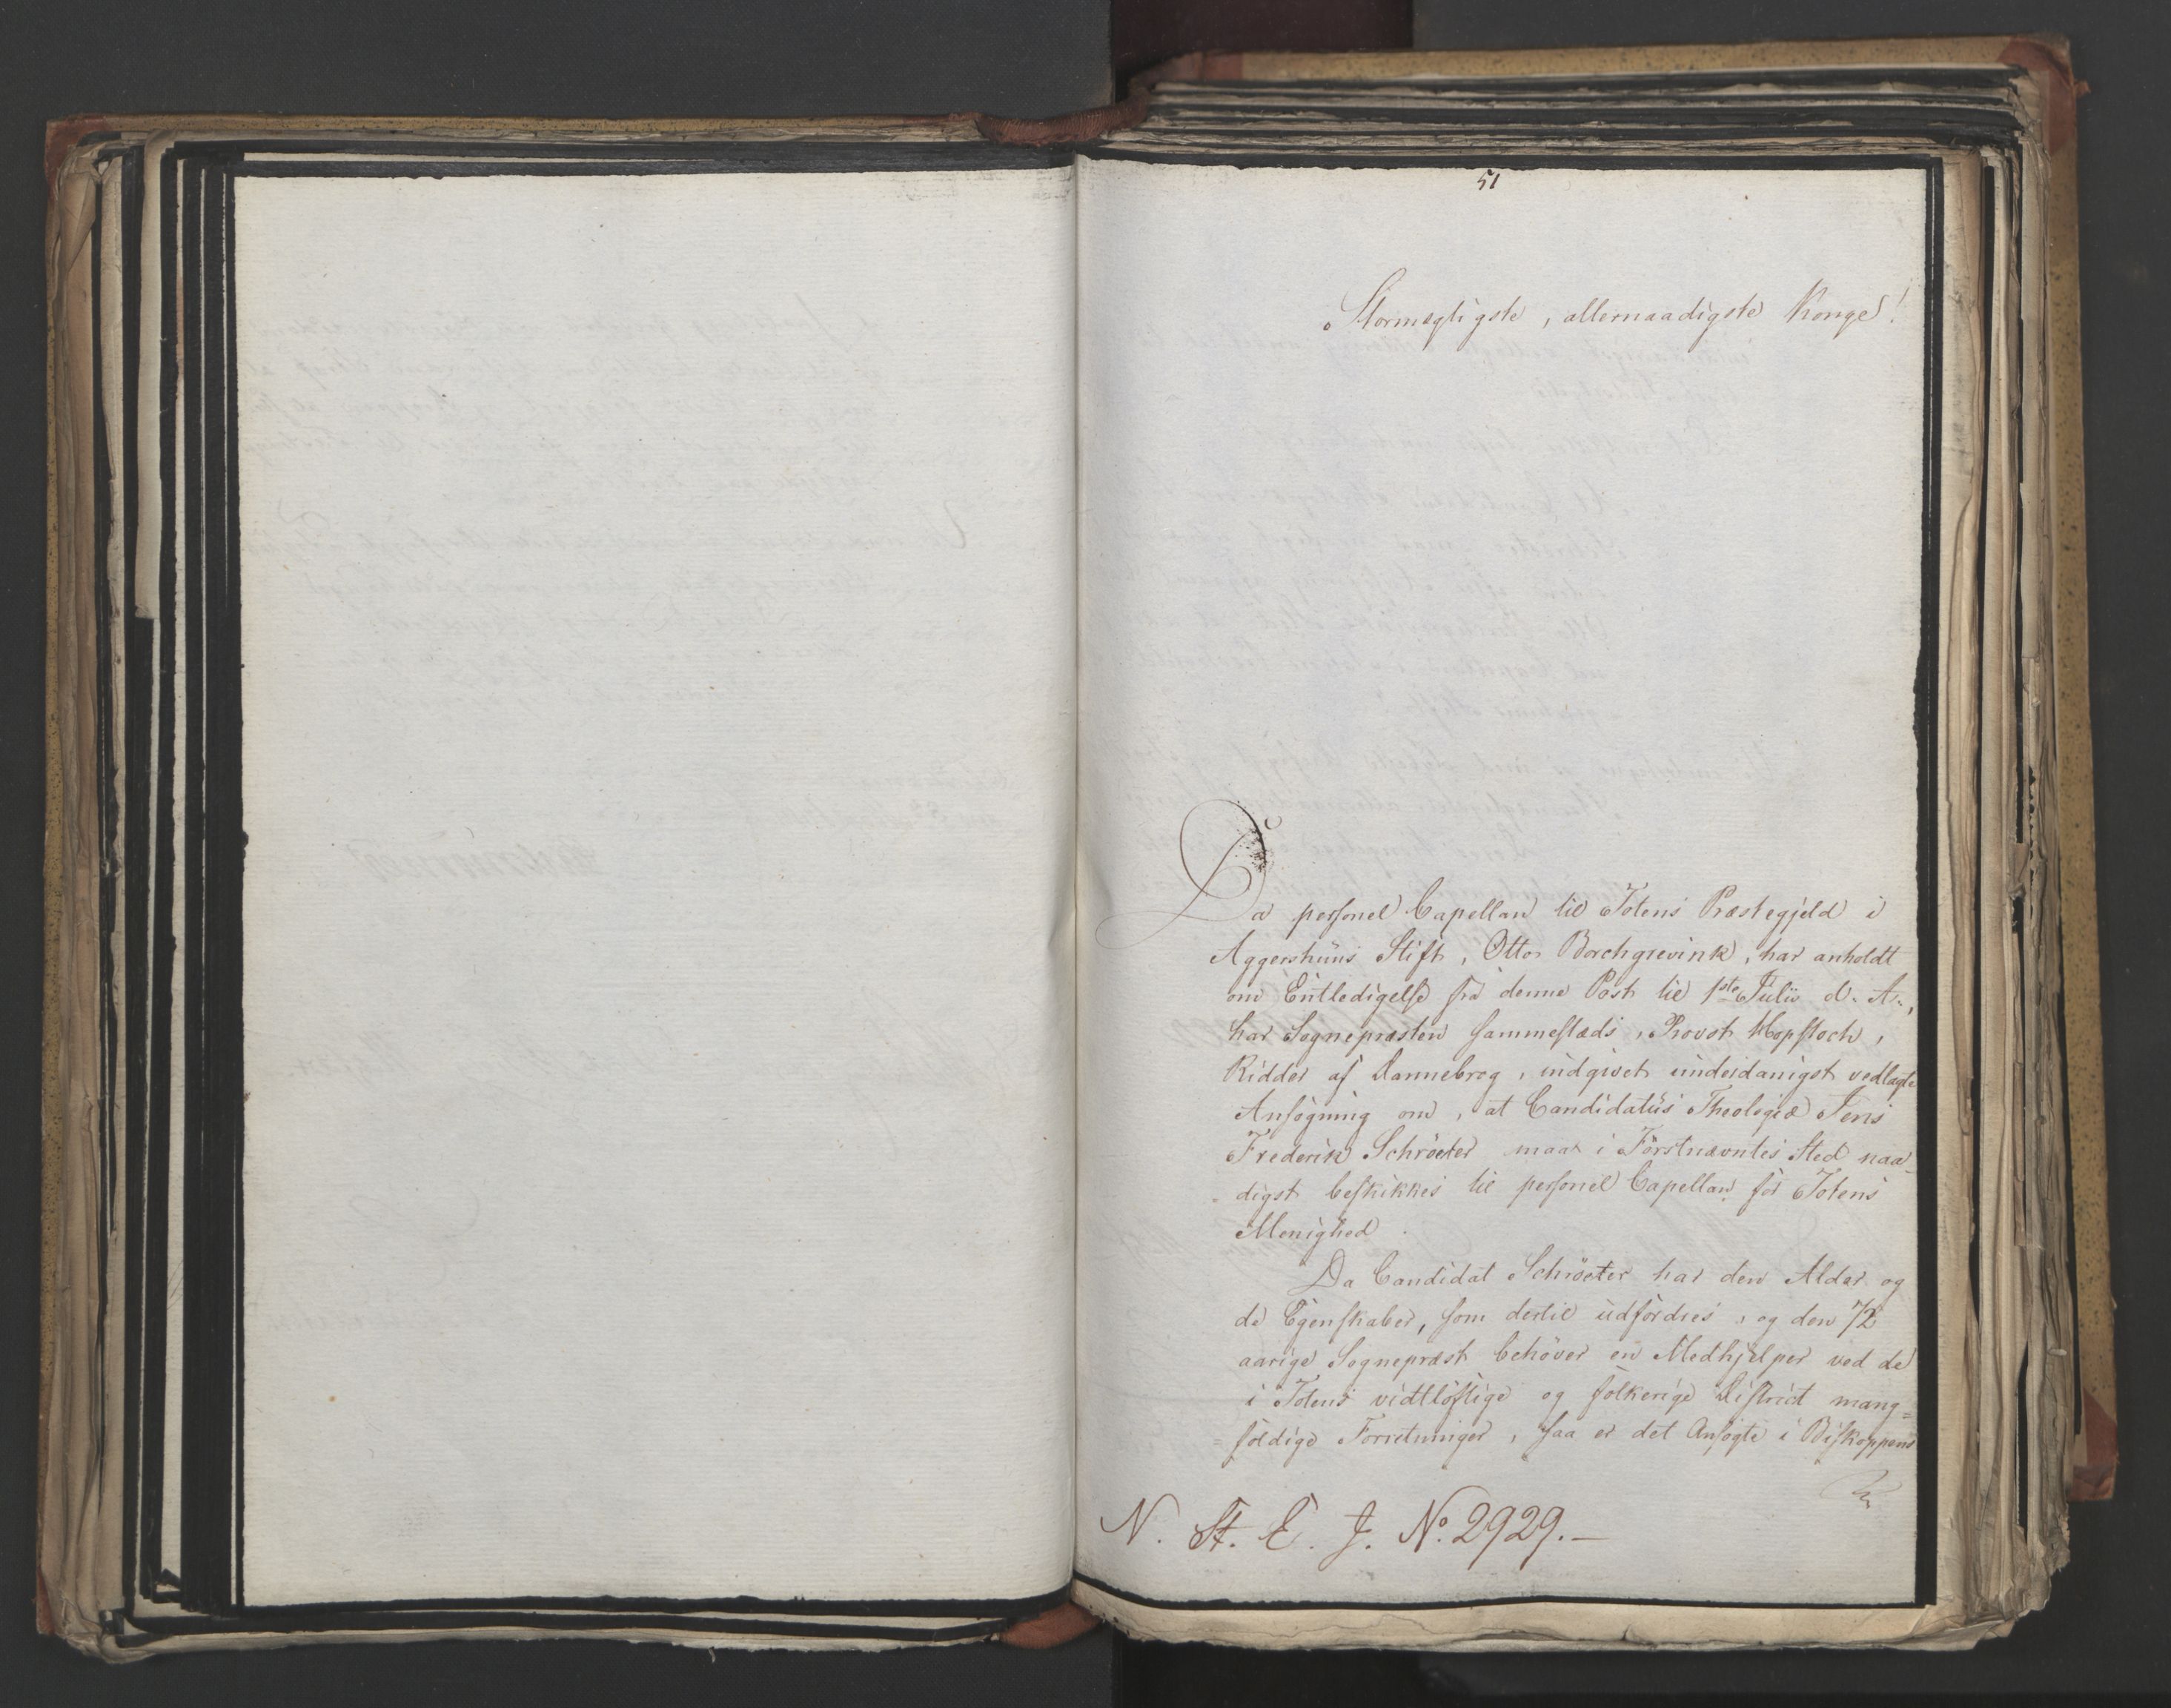 51
Stormægtigste, allernaadigste Konge!
Da personel Capellan til Totens Præstegjeld i
Aggershuus Stift, Otto Borchgrevink, har anholdt
om Entledigelse fra denne Post til 1ste Julii d. A.,
har Sognepræsten sammestæds, Provst Hopstock,
Ridder af Dannebrog, indgivet underdanigst vedlagte
Ansøgning om, at Candidatus Theologiæ Jens
Frederik Schrøeter maa i Førstnævntes Sted naa-
digst beskikkes til personel Capellan for Totens
Menighed.
Da Candidat Schrøeter har den Alder og
de Egenskaber, som dertil udfordres, og den 72
aarige Sognepræst behøver en Medhjelper ved de
i Totens vidtløftige og folkerige District mang=
=foldige Forretninger, saa er det Ansøgte i Biskoppens
N. St. E. J. No. 2929.-